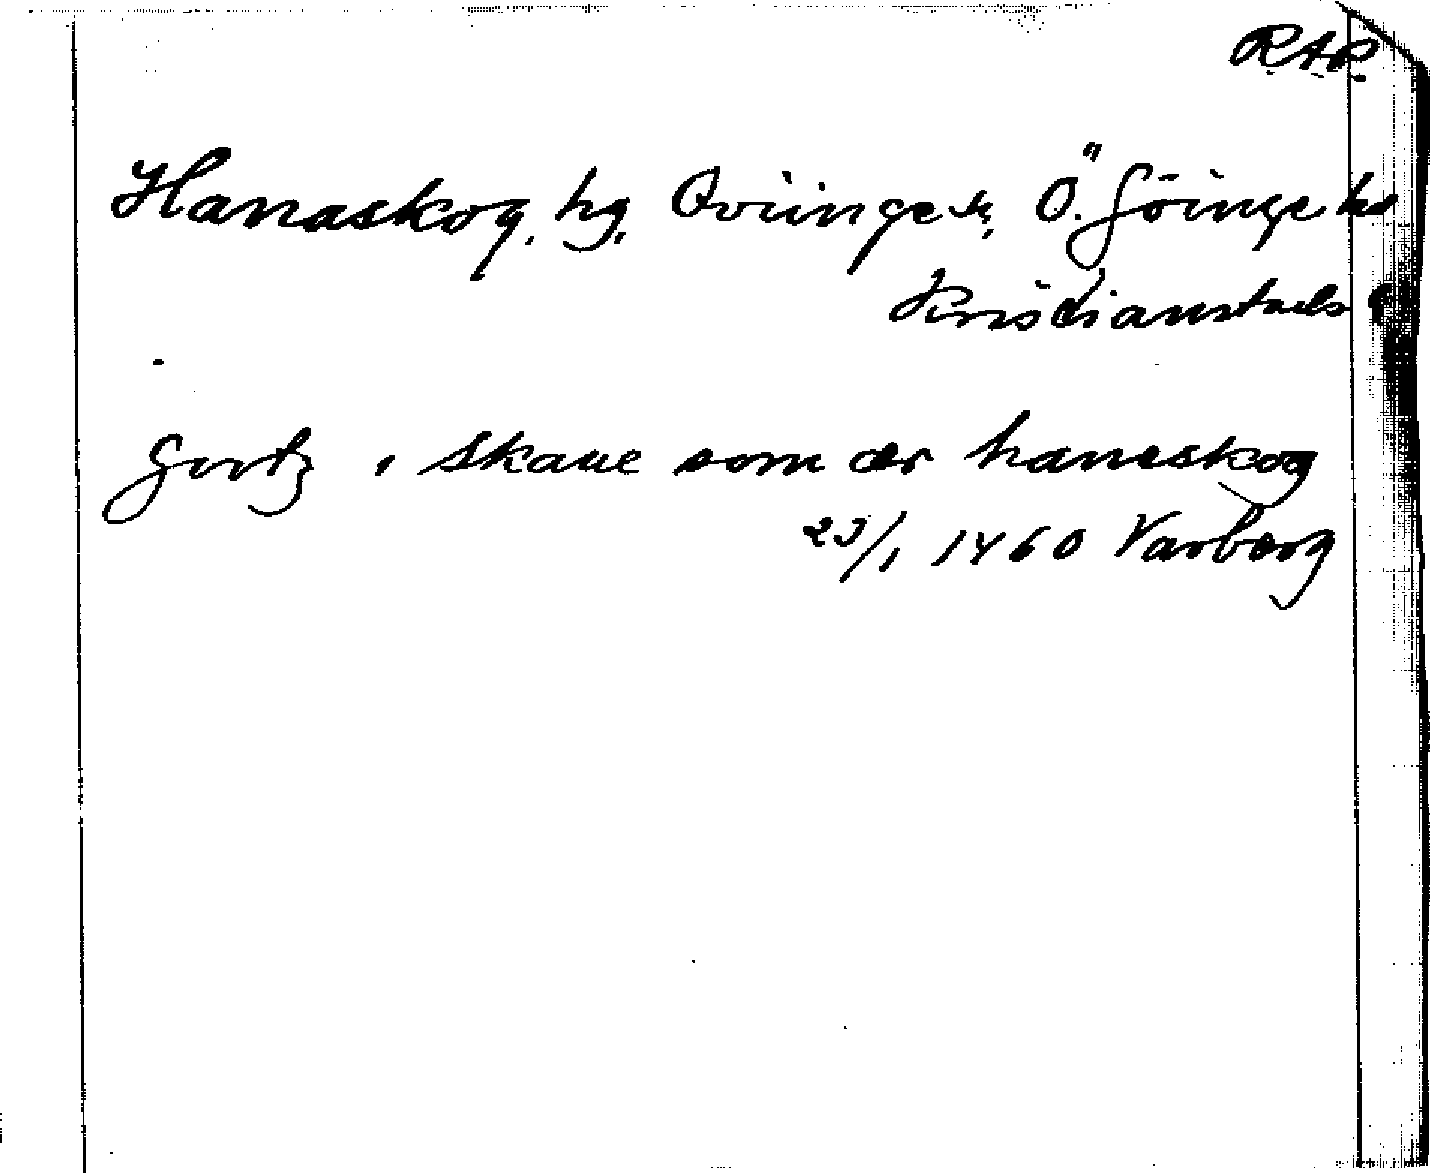 RAP
Hanaskog, hg, Qviinge sn, Ö. Göinge hd
Kristianstads l
i skane som ær haneskog
23/1 1460 Varberg